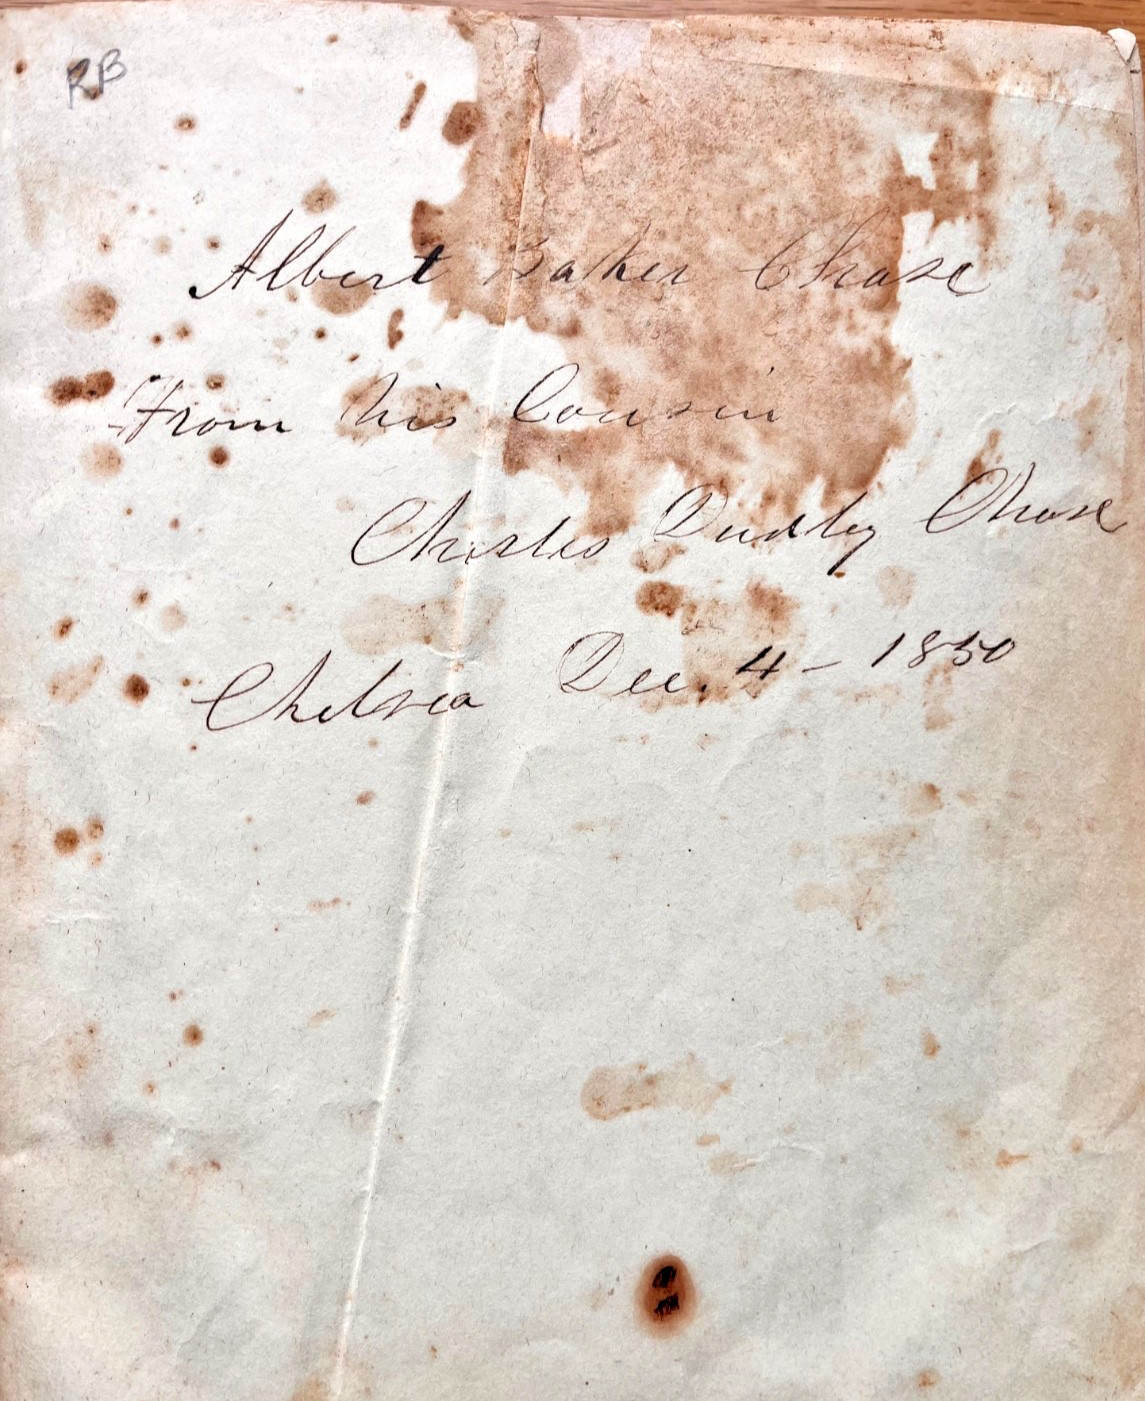 RB
Albert Baker Chase
From his Cousin
Charles Dudley Chase
Chelsea Dec. 4 - 1850